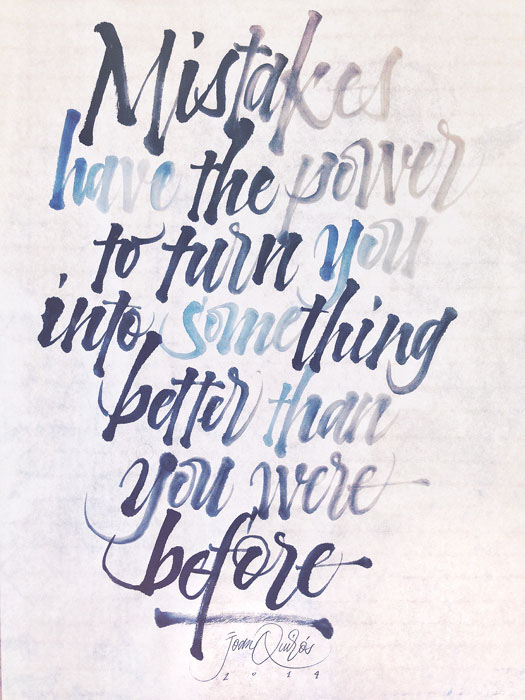 Mistakes
have the power
to turn you
into something
better than
you were
before
Joan Quirós
2014